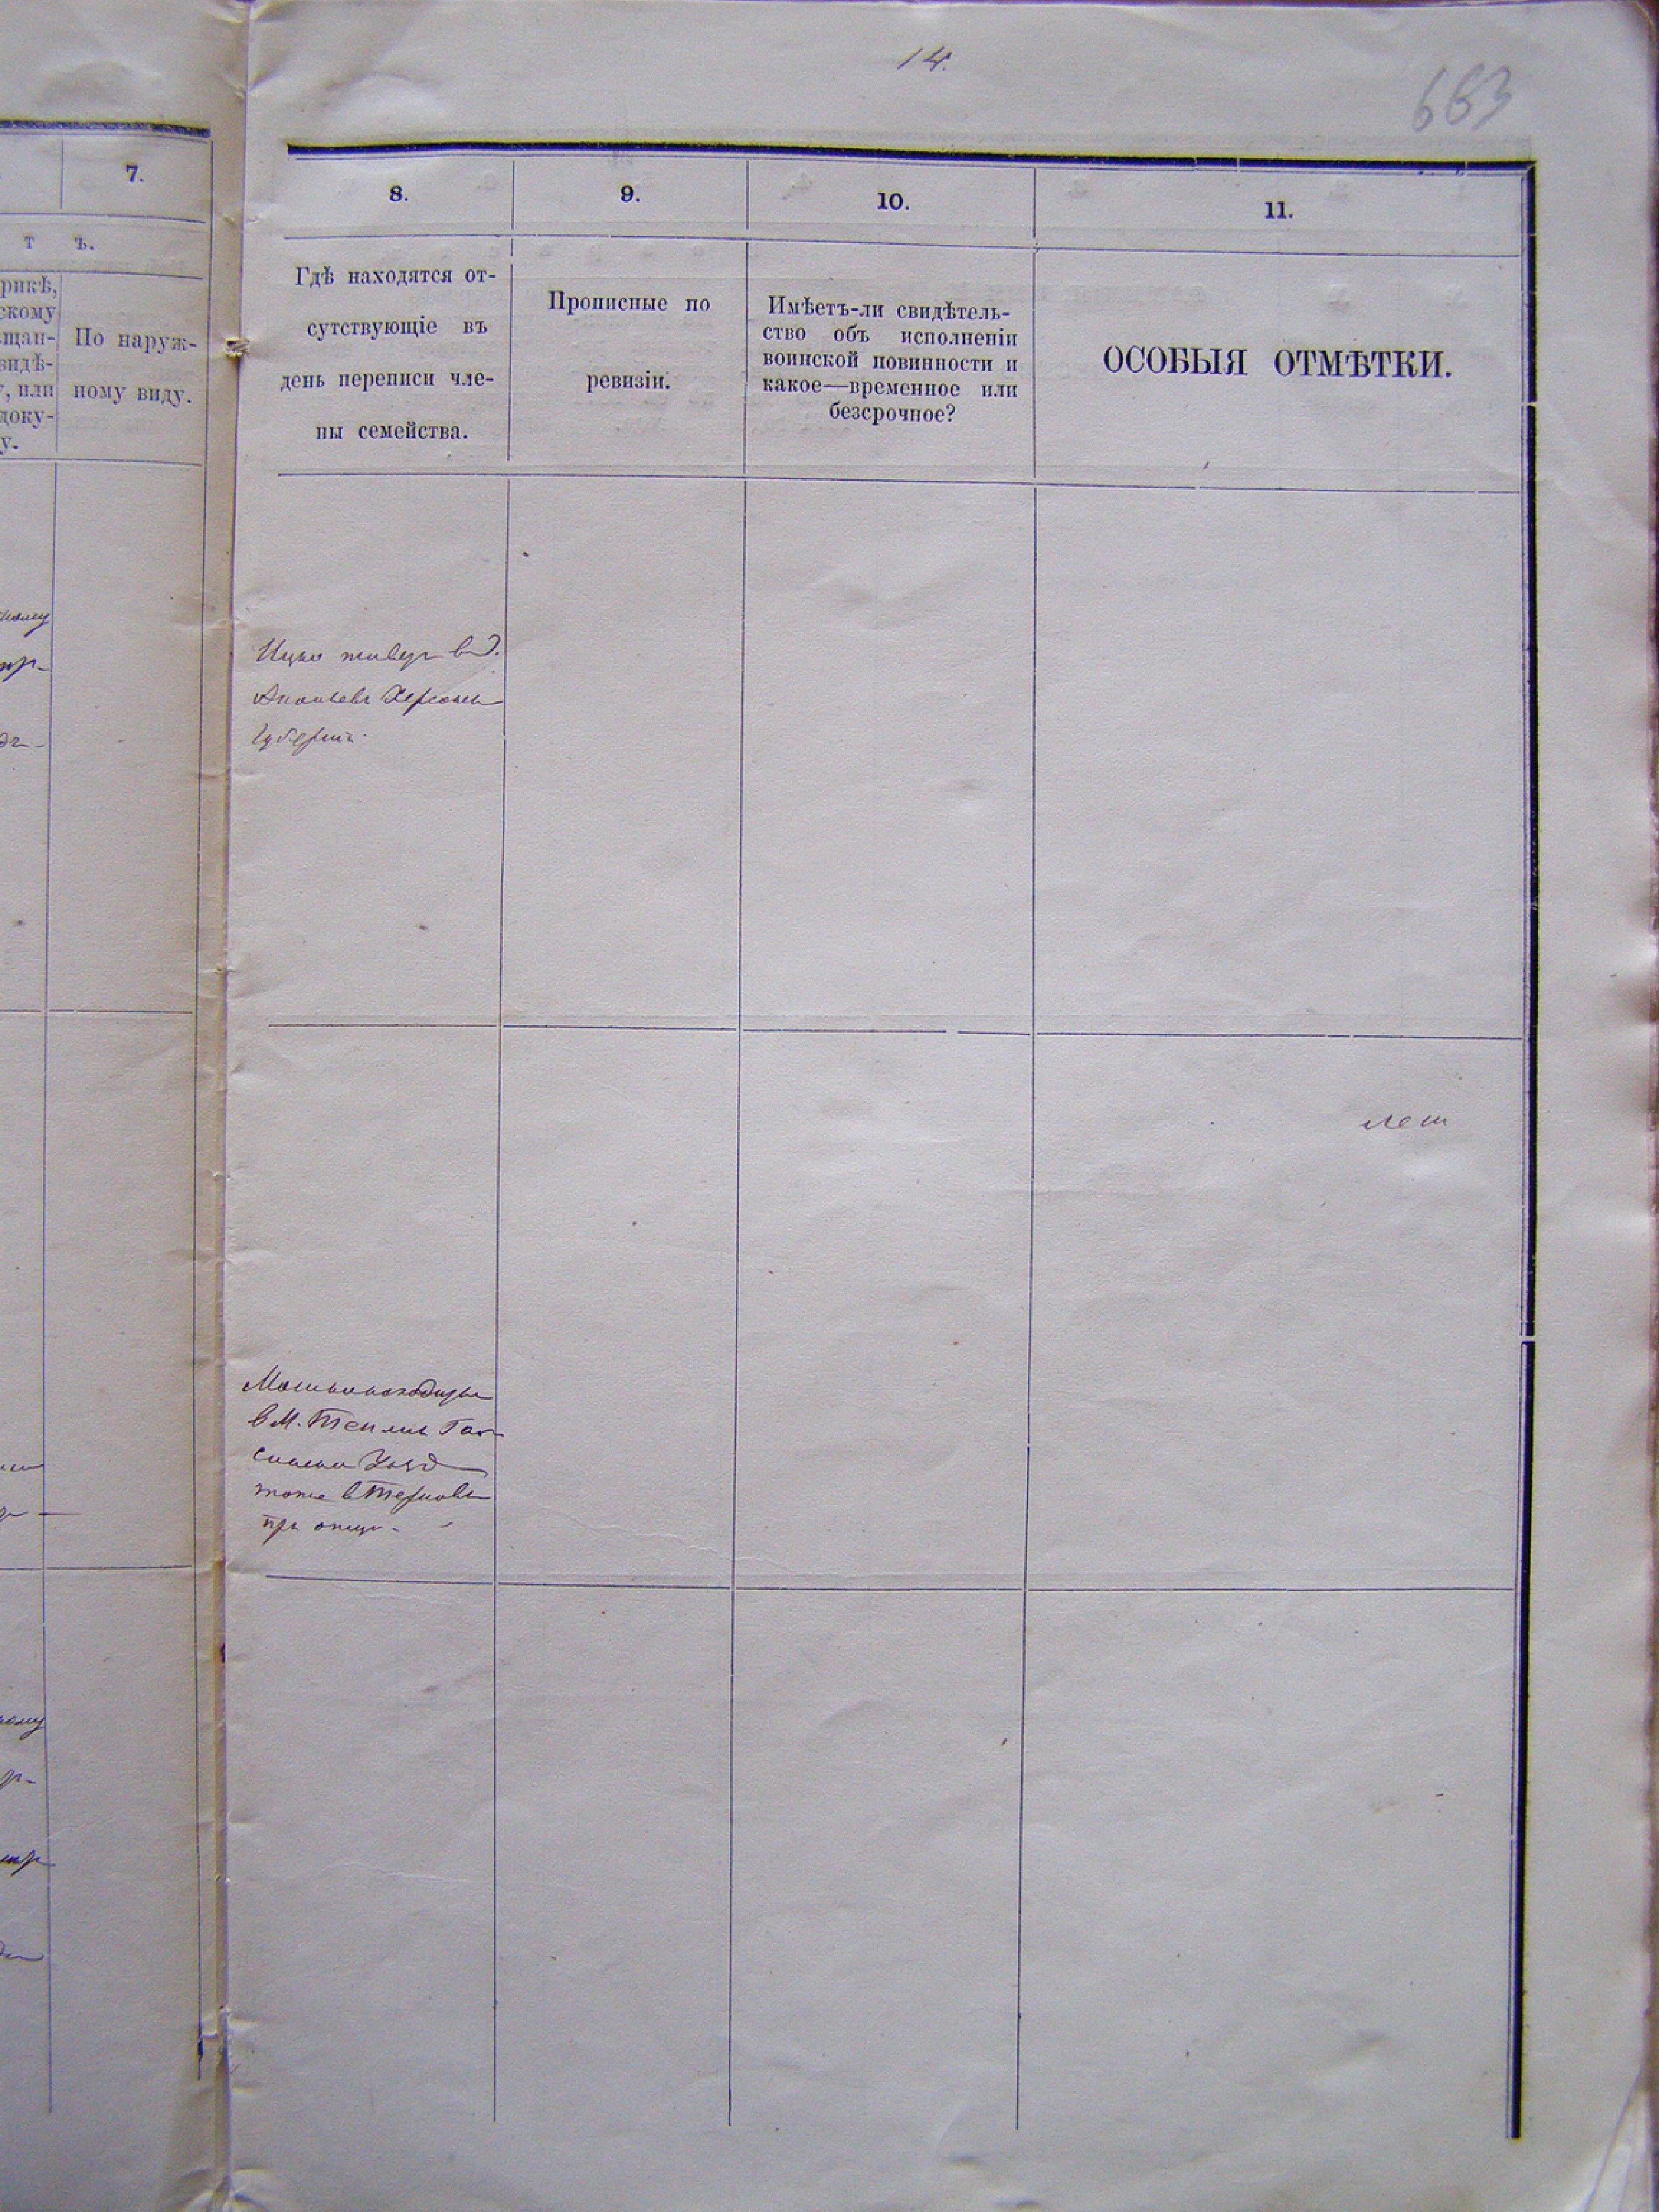 14.
663
7.
т ъ.
рикѣ,
скому
щан-
видѣ-
, или
доку-
у.
По наруж-
ному виду.
8.
9.
10.
11.
Гдѣ находятся от-
сутствующіе въ
день переписи чле-
ны семейства.
Прописные по
ревизіи.
Имѣетъ-ли свидѣтель-
ство объ исполненіи
воинской повинности и
какое—временное или
безсрочное?
ОСОБЫЯ ОТМѢТКИ.
Ицко живет в
Ананьевъ Херсонь
Губерніи
Мошко находитьс
в М. Теплик Гай
синськ Уезд
тоже в Терновк
при отце